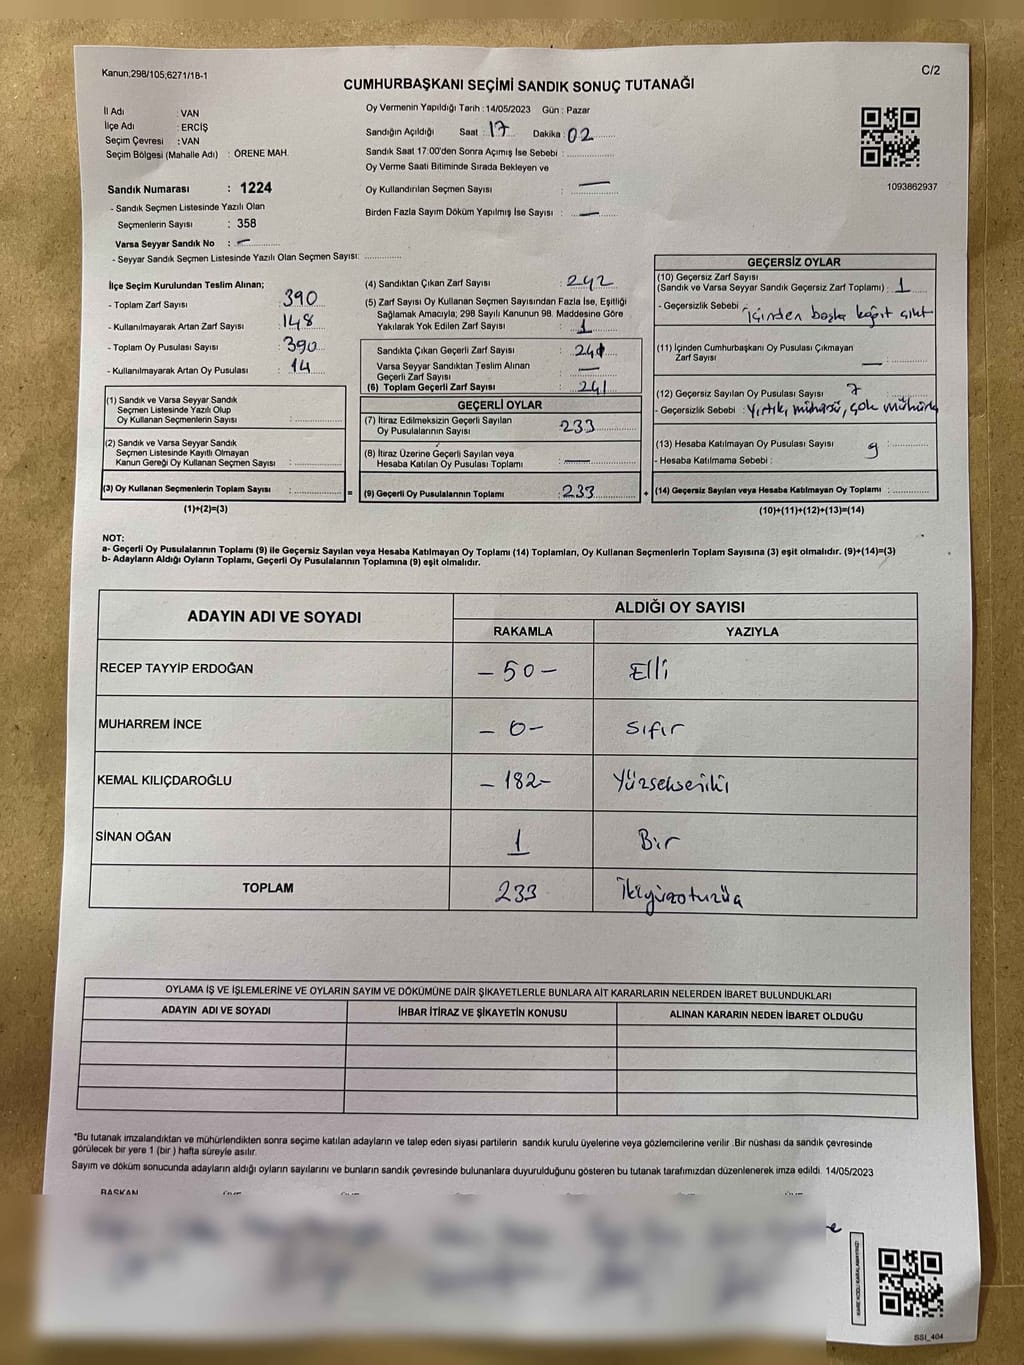 Kanun,298/105,6271/18-1
C/2
CUMHURBAŞKANI SEÇİMİ SANDIK SONUÇ TUTANAĞI
İl Adı : VAN
İlçe Adı : ERCİŞ
Seçim Çevresi : VAN
Seçim Bölgesi (Mahalle Adı) : ÖRENE MAH.
Oy Vermenin Yapıldığı Tarih : 14/05/2023 Gün : Pazar
Sandığın Açıldığı Saat : 17 Dakika : 02
Sandık Saat 17:00'den Sonra Açımış İse Sebebi :
Oy Verme Saati Bitiminde Sırada Bekleyen ve
Oy Kullandırılan Seçmen Sayısı : —
Birden Fazla Sayım Döküm Yapılmış İse Sayısı : —
1093862937
Sandık Numarası : 1224
- Sandık Seçmen Listesinde Yazılı Olan
Seçmenlerin Sayısı : 358
Varsa Seyyar Sandık No : —
- Seyyar Sandık Seçmen Listesinde Yazılı Olan Seçmen Sayısı:
İlçe Seçim Kurulundan Teslim Alınan;
- Toplam Zarf Sayısı : 390
- Kullanılmayarak Artan Zarf Sayısı : 148
- Toplam Oy Pusulası Sayısı : 390
- Kullanılmayarak Artan Oy Pusulası : 14
(1) Sandık ve Varsa Seyyar Sandık
Seçmen Listesinde Yazılı Olup
Oy Kullanan Seçmenlerin Sayısı :
(2) Sandık ve Varsa Seyyar Sandık
Seçmen Listesinde Kayıtlı Olmayan
Kanun Gereği Oy Kullanan Seçmen Sayısı :
(3) Oy Kullanan Seçmenlerin Toplam Sayısı :
(1)+(2)=(3)
(4) Sandıktan Çıkan Zarf Sayısı : 242
(5) Zarf Sayısı Oy Kullanan Seçmen Sayısından Fazla İse, Eşitliği
Sağlamak Amacıyla; 298 Sayılı Kanunun 98. Maddesine Göre
Yakılarak Yok Edilen Zarf Sayısı : 1
Sandıkta Çıkan Geçerli Zarf Sayısı : 241
Varsa Seyyar Sandıktan Teslim Alınan
Geçerli Zarf Sayısı : —
(6) Toplam Geçerli Zarf Sayısı : 241
GEÇERLİ OYLAR
(7) İtiraz Edilmeksizin Geçerli Sayılan
Oy Pusulalarının Sayısı : 233
(8) İtiraz Üzerine Geçerli Sayılan veya
Hesaba Katılan Oy Pusulası Toplamı : —
= (9) Geçerli Oy Pusulalarının Toplamı : 233
GEÇERSİZ OYLAR
(10) Geçersiz Zarf Sayısı
(Sandık ve Varsa Seyyar Sandık Geçersiz Zarf Toplamı) : 1
- Geçersizlik Sebebi : İçinden başka kağıt çıktı
(11) İçinden Cumhurbaşkanı Oy Pusulası Çıkmayan
Zarf Sayısı : —
(12) Geçersiz Sayılan Oy Pusulası Sayısı : 7
- Geçersizlik Sebebi : Yırtık, mühürsüz, çok mühürlü
(13) Hesaba Katılmayan Oy Pusulası Sayısı : 9
- Hesaba Katılmama Sebebi :
+ (14) Geçersiz Sayılan veya Hesaba Katılmayan Oy Toplamı :
(10)+(11)+(12)+(13)=(14)
NOT:
a- Geçerli Oy Pusulalarının Toplamı (9) ile Geçersiz Sayılan veya Hesaba Katılmayan Oy Toplamı (14) Toplamları, Oy Kullanan Seçmenlerin Toplam Sayısına (3) eşit olmalıdır. (9)+(14)=(3)
b- Adayların Aldığı Oyların Toplamı, Geçerli Oy Pusulalarının Toplamına (9) eşit olmalıdır.
ADAYIN ADI VE SOYADI
ALDIĞI OY SAYISI
RAKAMLA YAZIYLA
RECEP TAYYİP ERDOĞAN – 50 – Elli
MUHARREM İNCE – 0 – Sıfır
KEMAL KILIÇDAROĞLU – 182 – Yüzsekseniki
SİNAN OĞAN 1 Bir
TOPLAM 233 İkiyüzotuzüç
OYLAMA İŞ VE İŞLEMLERİNE VE OYLARIN SAYIM VE DÖKÜMÜNE DAİR ŞİKAYETLERLE BUNLARA AİT KARARLARIN NELERDEN İBARET BULUNDUKLARI
ADAYIN ADI VE SOYADI İHBAR İTİRAZ VE ŞİKAYETİN KONUSU ALINAN KARARIN NEDEN İBARET OLDUĞU
*Bu tutanak imzalandıktan ve mühürlendikten sonra seçime katılan adayların ve talep eden siyasi partilerin sandık kurulu üyelerine veya gözlemcilerine verilir .Bir nüshası da sandık çevresinde
görülecek bir yere 1 (bir ) hafta süreyle asılır.
Sayım ve döküm sonucunda adayların aldığı oyların sayılarını ve bunların sandık çevresinde bulunanlara duyurulduğunu gösteren bu tutanak tarafımızdan düzenlenerek imza edildi. 14/05/2023
BAŞKAN
SSI_404